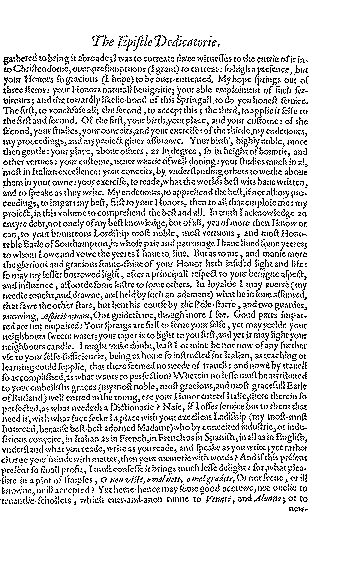 The Epistle Dedicatorie.
gathered to bring it abroade; I was to entreate three witnesses to the entrie of it in-
to Christendome, over-presumptuous (I grant) to entreate so high a presence, but
your Honors so gracious (I hope) to be over-entreated. My hope springs out of
three stems: your Honors naturall benignitie; your able emploiment of such ser-
vitours; and the towardly likelie-hood of this Springall, to do you honest service.
The first, to vouchsafe all; the second, to accept this; the third, to applie it selfe to
the first and second. Of the first, your birth, your place, and your custome: of the
second, your studies, your conceits, and your exercise: of the thirde, my endevours,
my proceedings, and my project gives assurance. Your birth, highly noble, more
then gentle: your place, above others, as in degree, so in height of bountie, and
other vertues: your custome, never wearie of well doing: your studies much in al,
most in Italian excellence: your conceits, by understanding others to worke above
them in your owne: your exercise, to reade, what the worlds best wits have written,
and to speake as they write. My endevours, to apprehend the best, if not all: my pro-
ceedings, to impart my best, first to your Honors, then to all that emploie me: my
project, in this volume to comprehend the best and all. In truth I acknowledge an
entyre debt, not onely of my best knowledge, but of all, yea of more then I know or
can, to your bounteous Lordship most noble, most vertuous, and most Hono-
rable Earle of Southampton, in whose paie and patronage I have lived some yeeres;
to whom I owe and vowe the yeeres I have to live. But as to me, and manie more
the glorious and gracious sunne-shine of your Honor hath infused light and life:
so may my lesser borrowed light, after a principall respect to your benigne aspect,
and influence, affoorde some lustre to some others. In loyaltie I may averre (my
needle toucht, and drawne, and held by such an adamant) what he in love assumed,
that sawe the other stars, but bent his course by the Pole-starre, and two guardes,
avowing, Aspicit unam, One guideth me, though more I see. Good parts impar-
red are not impaired: Your springs are first to serve your selfe, yet may yeelde your
neighbours sweete water; your taper is to light to you first, and yet it may light your
neighbours candle. I might make doubt, least I or mine be not now of any further
use to your selfe-sufficiencie, being at home so instructed to Italian, as teaching or
learning could supplie, that there seemed no neede of travell: and nowe by travell
so accomplished, as what wants to perfection? Wherein no lesse must be attributed
to your embellisht graces (my most noble, most gracious, and most gracefull Earle
of Rutland) well entred in the toong, ere your Honor entered Italie, there therein so
perfected, as what needeth a Dictionarie? Naie, if I offer service but to them that
need it, with what face seeke I a place with your excellent Ladiship (my most-most
honored, because best-best adorned Madame) who by conceited industrie, or indu-
strious conceite, in Italian as in French, in French as in Spanish, in all as in English,
understand what you reade, write as you reade, and speake as you write; yet rather
charge your minde with matter, then your memorie with words? And if this present
present so small profit, I must confesse it brings much lesse delight: for, what plea-
sure in a plot of simples, O non viste, o mal note, o mal gradite, Or not seene, or ill
knowne, or ill accepted? Yet heere-hence may some good accrewe, not onelie to
truantlie-schollers, which ever-and-anon runne to Venuti, and Alunno; or to